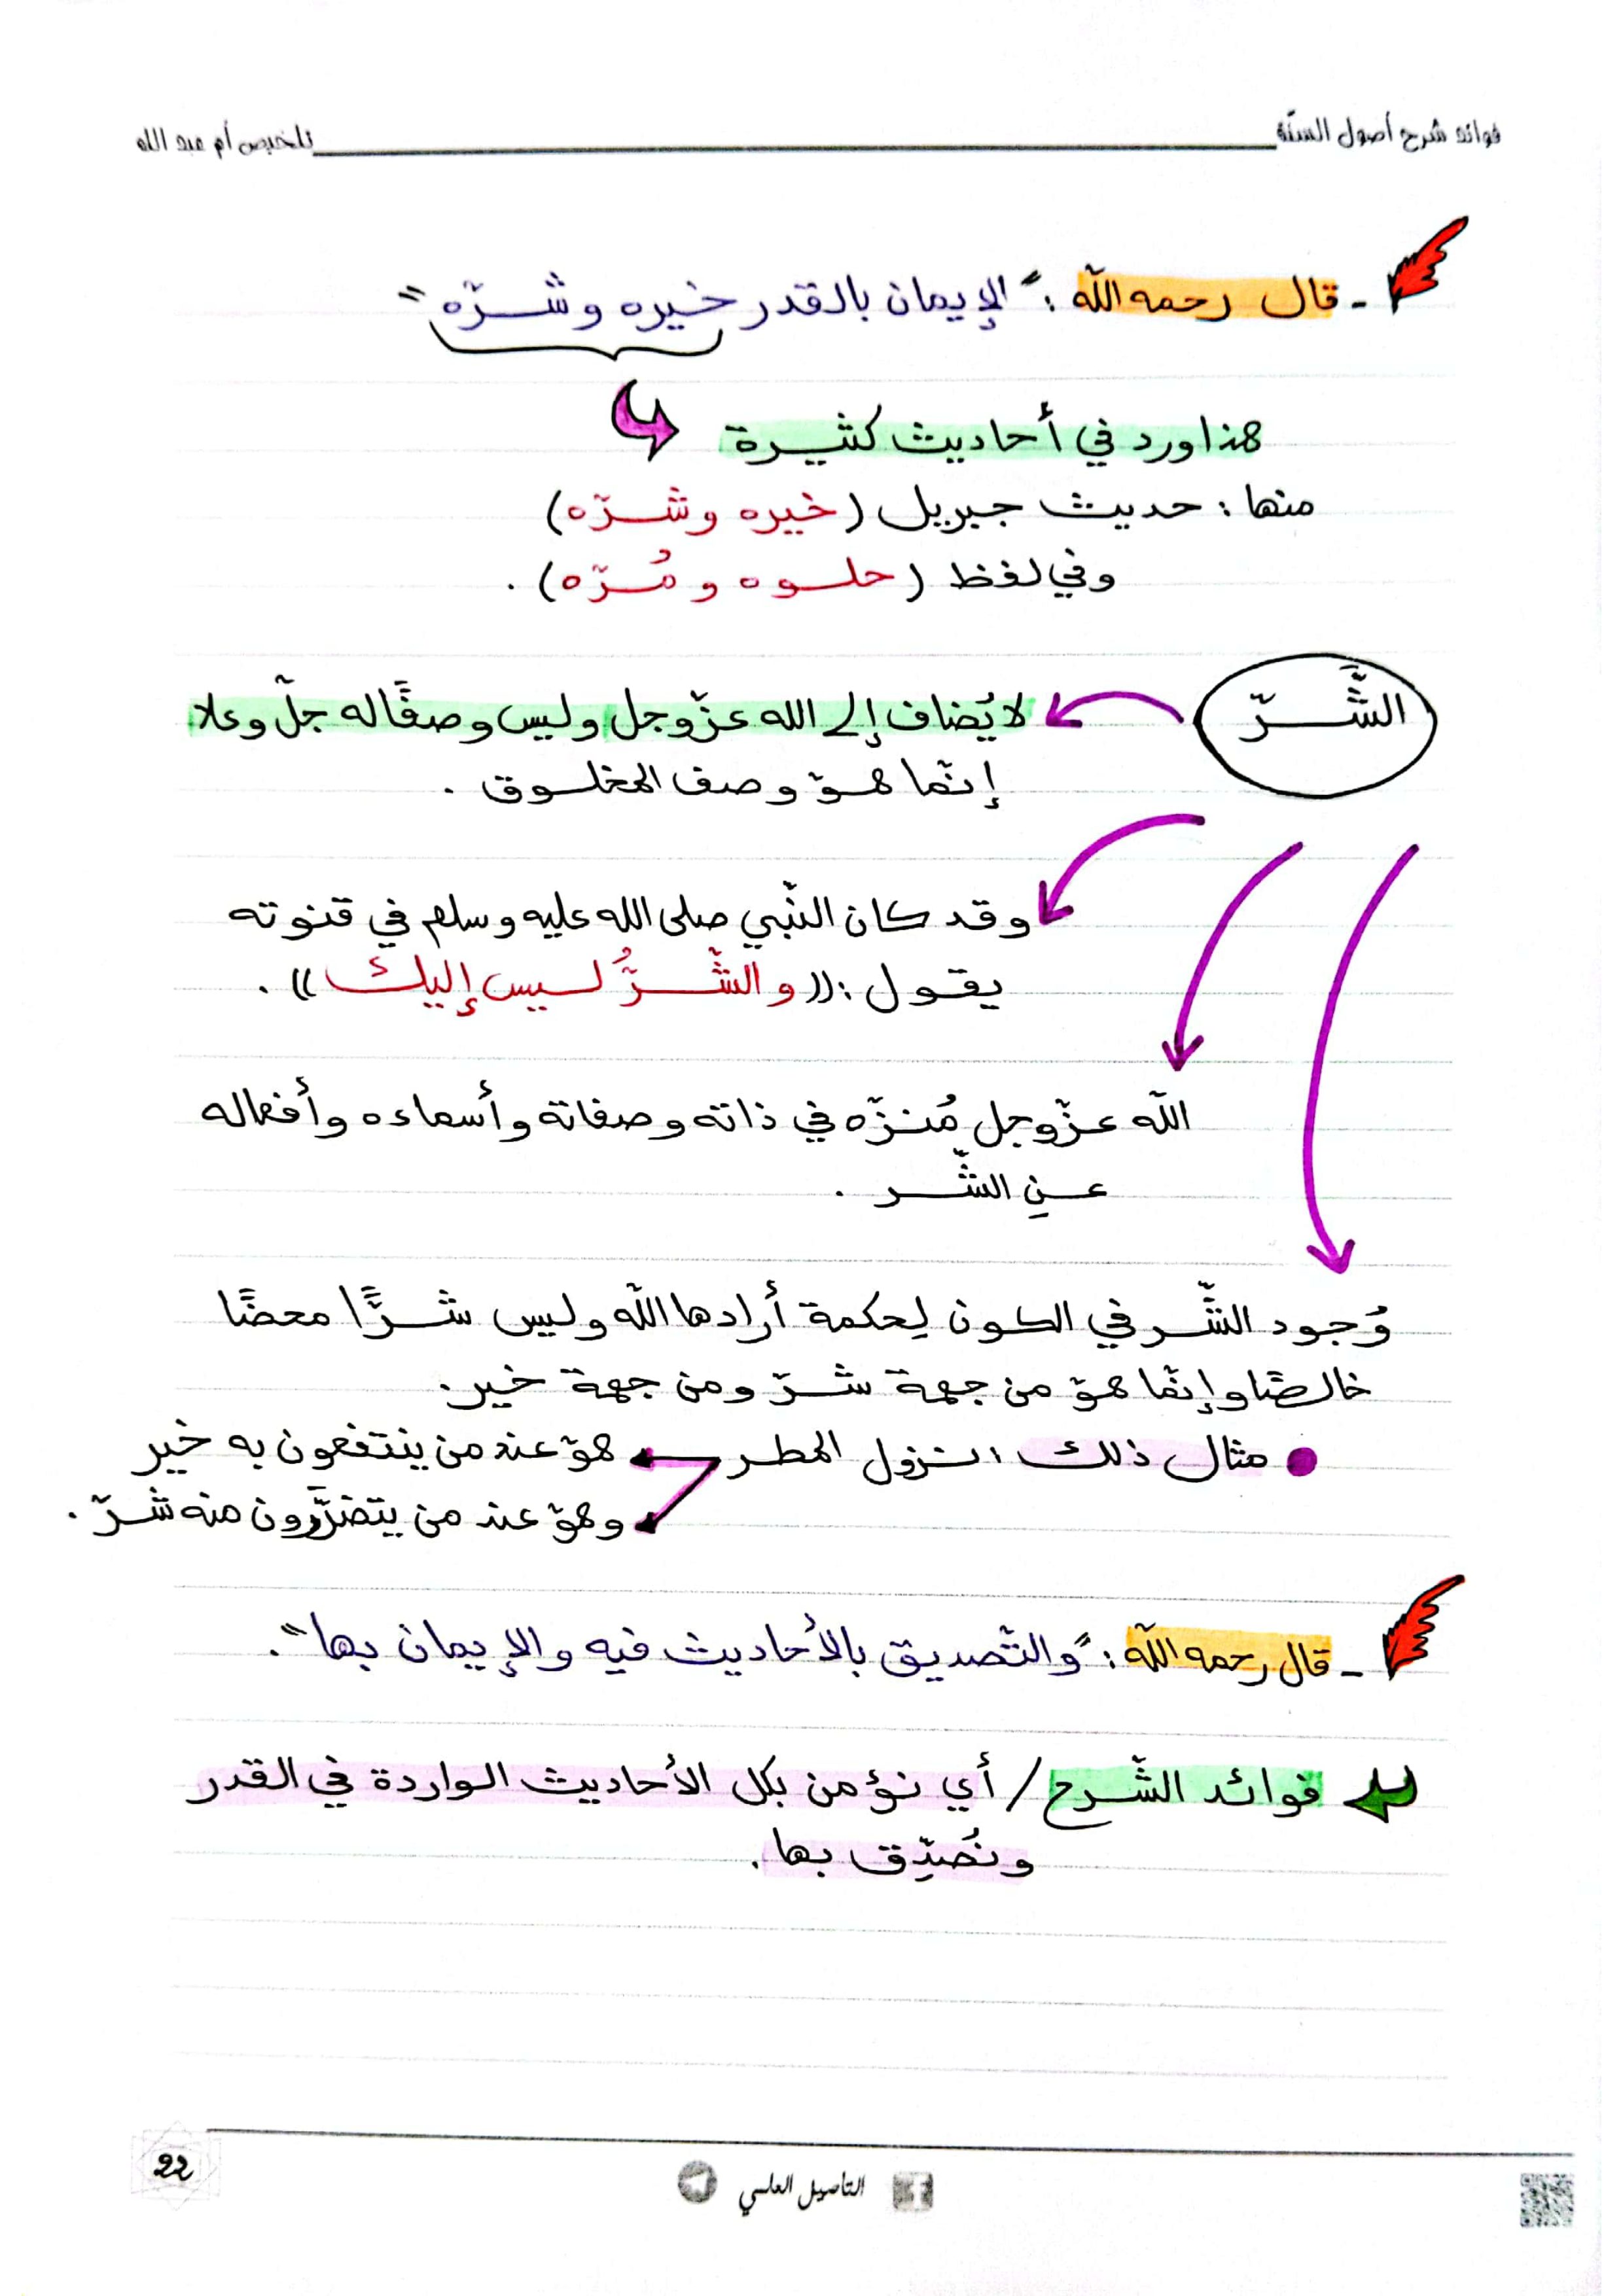 فوائد شرح أصول السنّة
تلخيص أم عبد الله
- قال رحمه الله : "الإيمان بالقدر خيره وشرّه"
هذا ورد في أحاديث كثيرة
منها : حديث جبريل (خيره وشرّه)
وفي لفظ (حلوه ومُرّه) .
الشَّرّ
لا يُضاف إلى الله عزّ وجل وليس وصفًا له جلّ وعلا
إنّما هوّ وصف المخلوق .
وقد كان النّبي صلى الله عليه وسلم في قنوته
يقول : ((والشّرُّ ليس إليك)) .
اللّه عزّوجل مُنزّه في ذاته وصفاته وأسماءه وأفعاله
عنِ الشّر .
وُجود الشّر في الكون لِحكمة أرادها اللّه وليس شرًّا محضًا
خالصًا وإنّما هوّ من جهة شرّ ومن جهة خير .
مثال ذلك : نزول المطر
هوّ عند من ينتفعون به خير
وهوّ عند من يتضرَّرون منه شرّ .
- قال رحمه اللّه : "والتّصديق بالأحاديث فيه والإيمان بها" .
فوائد الشّرح / أي نؤمن بكل الأحاديث الواردة في القدر
ونُصدِّق بها .
22
التأصيل العلمي